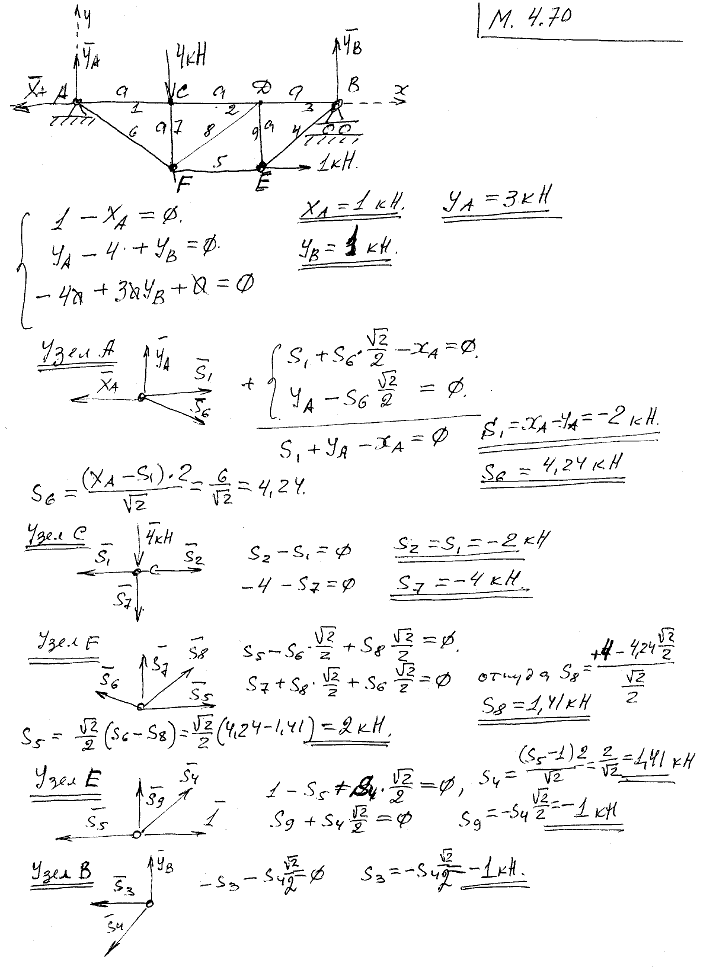 М. 4.70
y
ȲA
4кН
ȲB
X̄A A a C a D a B x
1 2 3
6 a 7 8 9 a 4
5
F E 1кН.
1 − XA = 0.
YA − 4 + YB = 0.
− 4a + 3aYB + a = 0
XA = 1 кН. YA = 3 кН
YB = 1 кН.
Узел A
ȲA
X̄A S̄1
S̄6
+ { S1 + S6 · √2/2 − XA = 0.
YA − S6 √2/2 = 0.
S1 + YA − XA = 0
S1 = XA − YA = −2 кН.
S6 = 4,24 кН
S6 = (XA − S1) · 2/√2 = 6/√2 = 4,24.
Узел C
4̄кН
S̄1 S̄2
C
S̄7
S2 − S1 = 0 S2 = S1 = −2 кН
−4 − S7 = 0 S7 = −4 кН.
Узел F
S̄7 S̄8
S̄6 S̄5
S5 − S6 · √2/2 + S8 √2/2 = 0.
S7 + S8 · √2/2 + S6 √2/2 = 0
откуда S8 = (+4 − 4,24 √2/2)/(√2/2)
S8 = 1,41 кН
S5 = √2/2 (S6 − S8) = √2/2 (4,24 − 1,41) = 2 кН.
Узел E
S̄9 S̄4
S̄5 1̄
1 − S5 + S4 · √2/2 = 0, S4 = (S5 − 1)2/√2 = 2/√2 = 1,41 кН
S9 + S4 √2/2 = 0 S9 = −S4 √2/2 = −1 кН
Узел B
ȲB
S̄3
S̄4
−S3 − S4 √2/2 = 0 S3 = −S4 √2/2 = −1 кН.